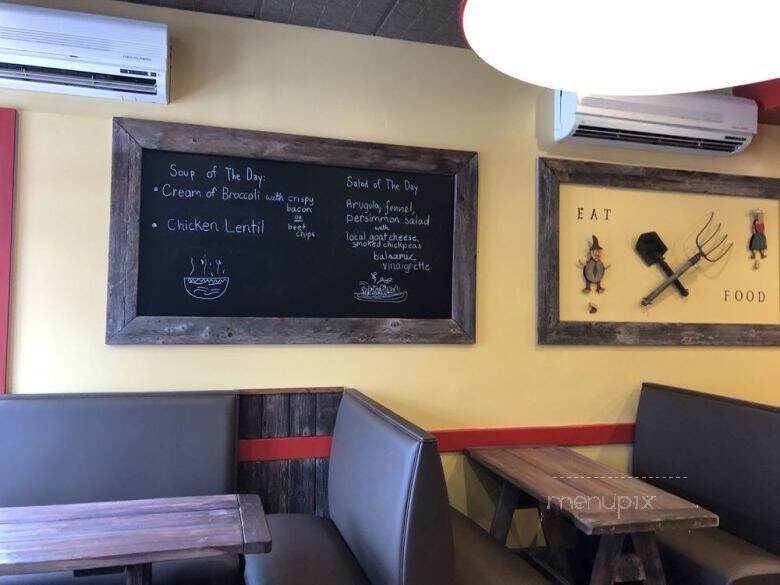 Soup of The Day:
• Cream of Broccoli with crispy
bacon
or
beet
chips
• Chicken Lentil
Salad of The Day
Arugula, fennel,
persimmon salad
with
local goat cheese,
smoked chickpeas
balsamic
vinaigrette
EAT
FOOD
menupix